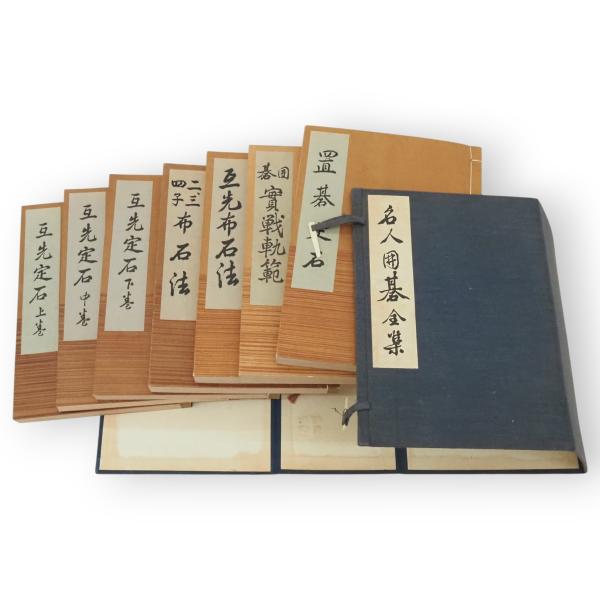 互先定石上巻
互先定石中巻
互先定石下巻
二、三
四子
布石法
互先布石法
囲
碁
實戦軌範
置碁定石
名人囲碁全集